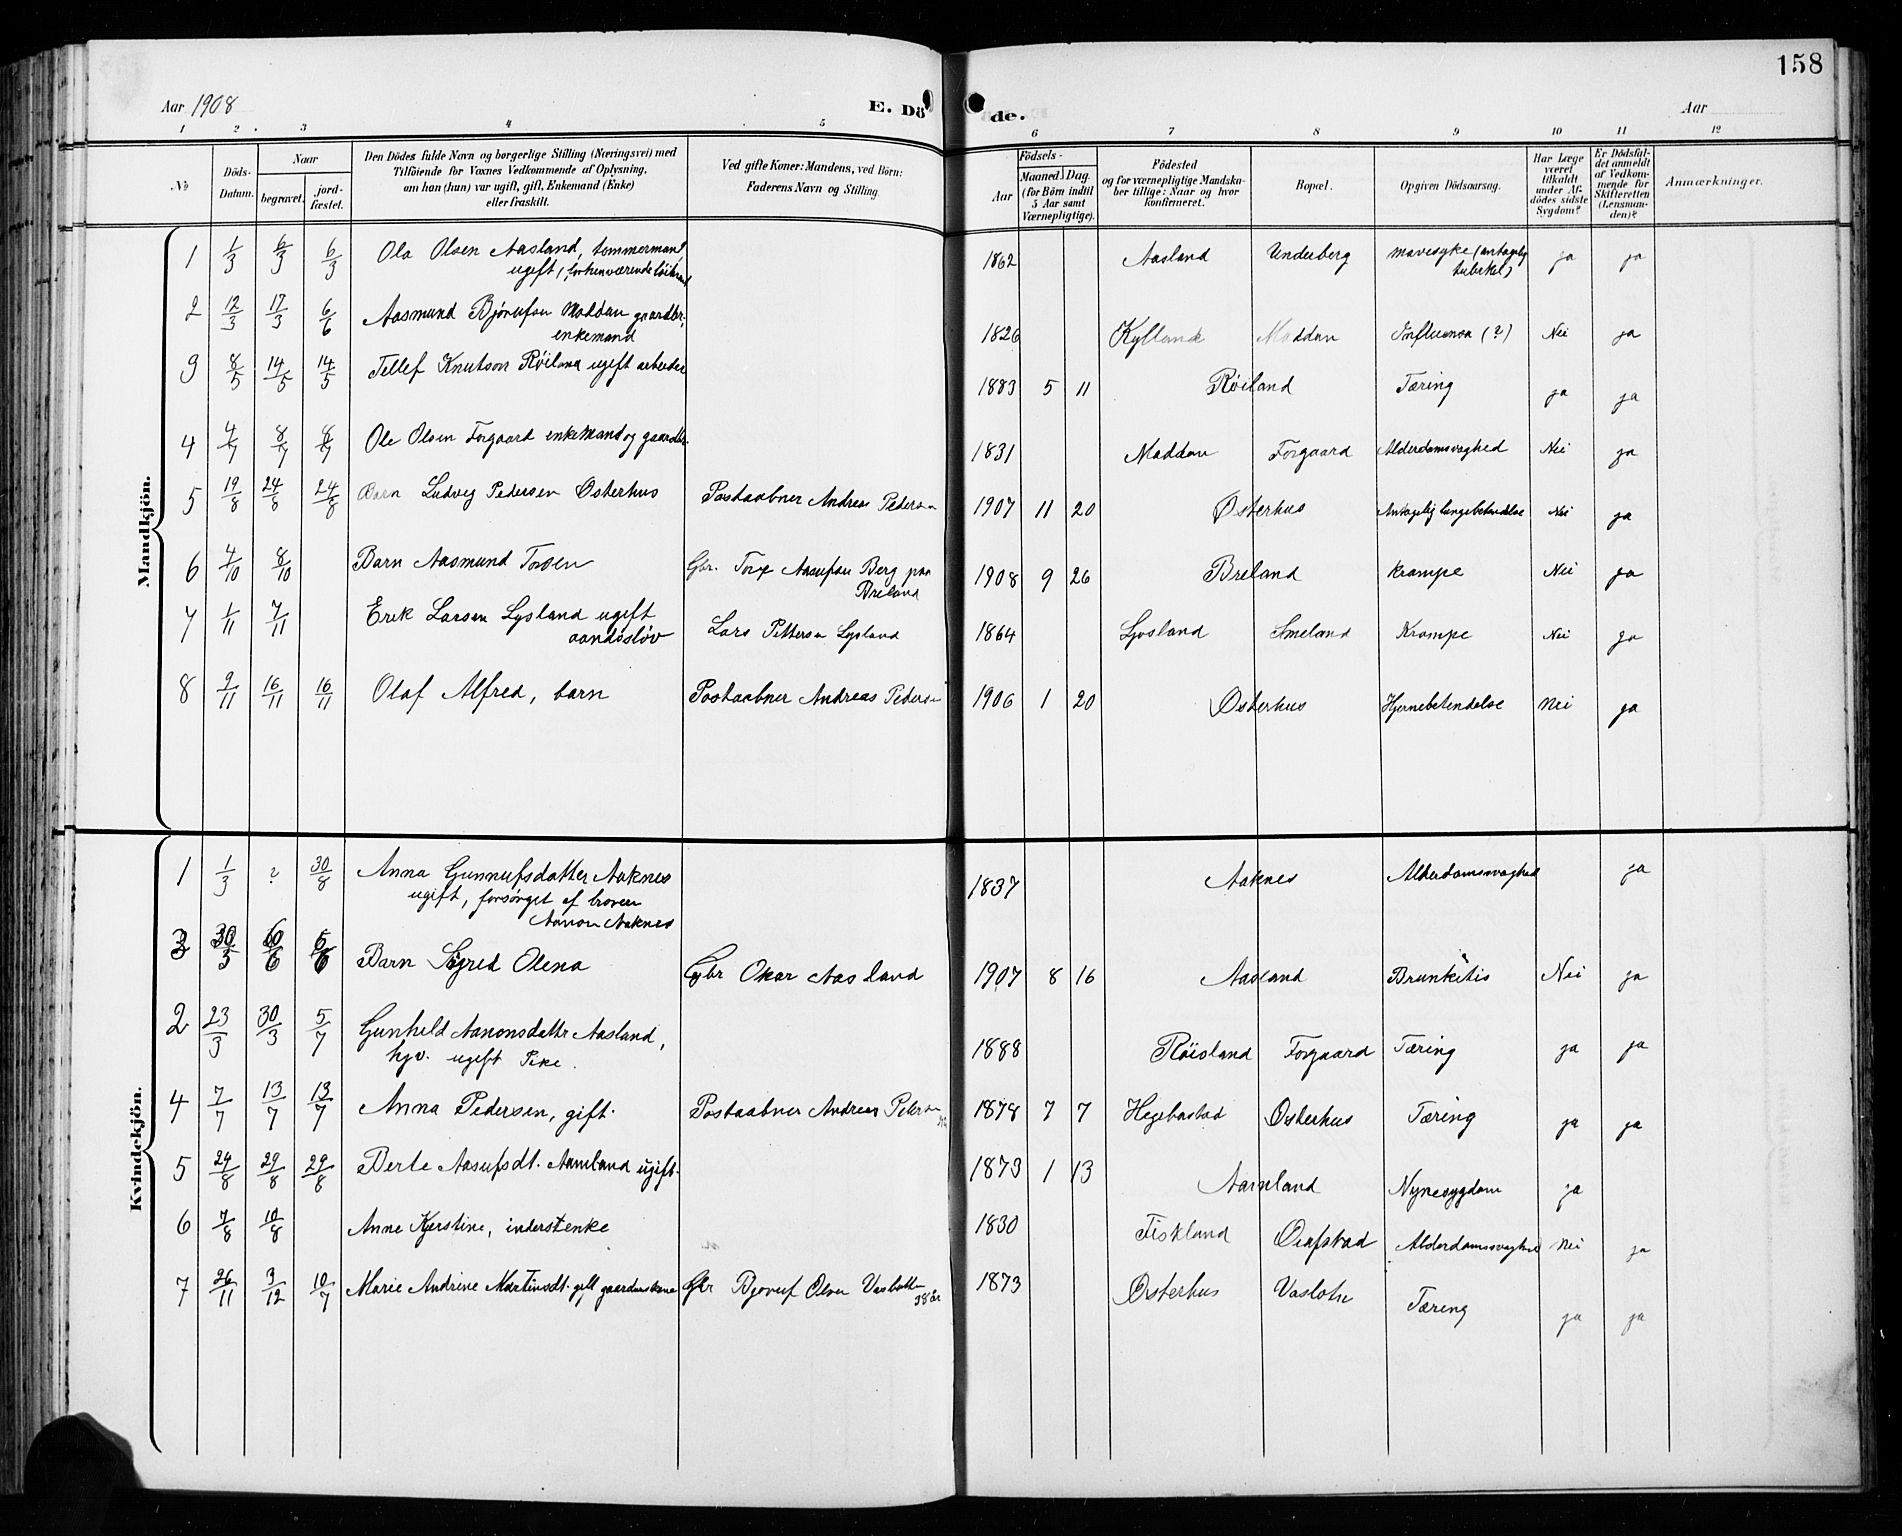 158
Aar 1908
E. Döde.
Aar
1 2 3 4 5 6 7 8 9 10 11 12
No
Döds-Datum.
Naar
begravet.
jord-fæstet.
Den Dödes fulde Navn og borgerlige Stilling (Næringsvei) med
Tilföiende for Voxnes Vedkommende af Oplysning,
om han (hun) var ugift, gift, Enkemand (Enke)
eller fraskilt.
Ved gifte Koner: Mandens, ved Börn:
Faderens Navn og Stilling.
Födsels-
Aar
Maaned. Dag.
(for Börn indtil
5 Aar samt
Værnepligtige).
Födested
og for værnepligtige Mandska-
ber tillige: Naar og hvor
konfirmeret.
Bopæl.
Opgiven Dödsaarsag.
Har Læge
været
tilkaldt
under Af-
dödes sidste
Sygdom?
Er Dödsfal-
det anmeldt
af Vedkom-
mende for
Skifteretten
(Lensman-
den)?
Anmærkninger.
Mandkjön.
1 1/3 6/3 6/3 Ola Olsen Aasland, tømmermand 1862 Aasland Underberg mavesyke (antagelig ja ja
ugift, forhenværende tuberkel)
2 12/3 17/3 6/6 Aasmund Bjørufsen Moddan gaardbr, 1826 Kylland Moddan Influensa (?) Nei ja
enkemand
3 8/5 14/5 14/5 Tellef Knutson Røiland ugift arbeider 1883 5 11 Røiland Tæring ja ja
4 4/7 8/7 8/7 Ole Olsen Forgaard enkemand og gaardbr. 1831 Moddan Forgaard Alderdomsvaghed Nei ja
5 19/8 24/8 24/8 Barn Ludvig Pedersen Østerhus Postaabner Andreas Pedersen 1907 11 20 Østerhus Antagelig lungebetendelse Nei ja
6 4/10 8/10 Barn Aasmund Torsen Gbr. Torje Aasufsen Berg paa 1908 9 26 Breland Krampe Nei ja
Breland
7 1/11 7/11 Erik Larsen Lysland ugift Lars Pettersen Lysland 1864 Ljosland Smeland Krampe Nei ja
aandssløv
8 9/11 16/11 16/11 Olaf Alfred, barn Postaabner Andreas Pedersen 1906 1 20 Østerhus Hjernebetendelse Nei ja
Kvindekjön.
1 1/3 ? 30/8 Anna Gunnufsdatter Aaknes 1837 Aaknes Alderdomssvaghed ja
ugift, forsørget af broren
Aanon Aaknes
3 Barn Sigred Olena Gbr Oskar Aasland 1907 8 16 Aasland Brunkitis Nei ja
2 23/3 30/3 5/7 Gunhild Aanonsdattr Aasland, 1888 Røisland Forgaard Tæring ja ja
hjv. ugift Pike.
4 7/7 13/7 13/7 Anna Pedersen, gift. Postaabner Andreas Pedersen 1878 7 7 Hegebostad Østerhus Tæring ja ja
5 24/8 29/8 29/8 Berte Aasufsdt. Aamland ugift. 1873 1 13 Aamland Nyresygdom ja
6 7/8 10/8 Anne Kjerstine, inderstenke 1830 Fiskland Øiafstad Alderdomssvaghed Nei ja
7 26/11 3/12 10/7 Marie Andrine Martinsdt. gift gaardmkone Gbr Bjoruf Olsen Vasbotten 1873 Østerhus Vasbotn Tæring ja ja
38 år